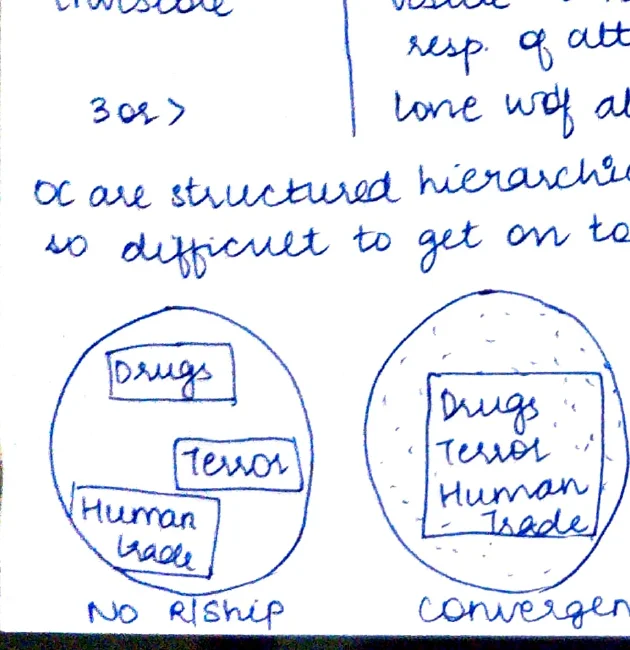 invisible
resp. of att
3 or > lone wolf at
OC are structured hierarchi
so difficult to get on to
Drugs
Terror
Human
trade
NO R/SHIP
Drugs
Terror
Human
Trade
Convergen